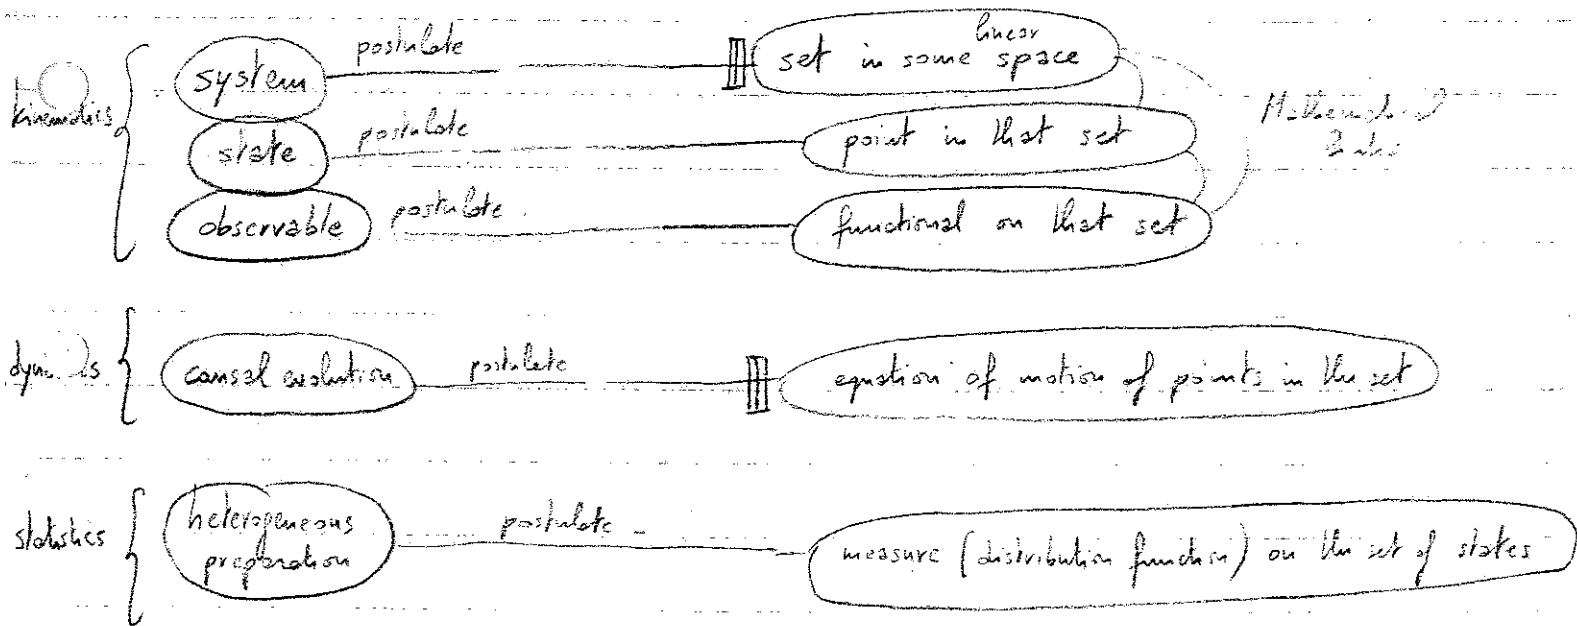 linear
system postulate set in some space
kinematics state postulate point in that set Mathematical
observable postulate functional on that set
causal evolution postulate equation of motion of points in the set
statistics heterogeneous postulate measure (distribution function) on the set of states
preparation